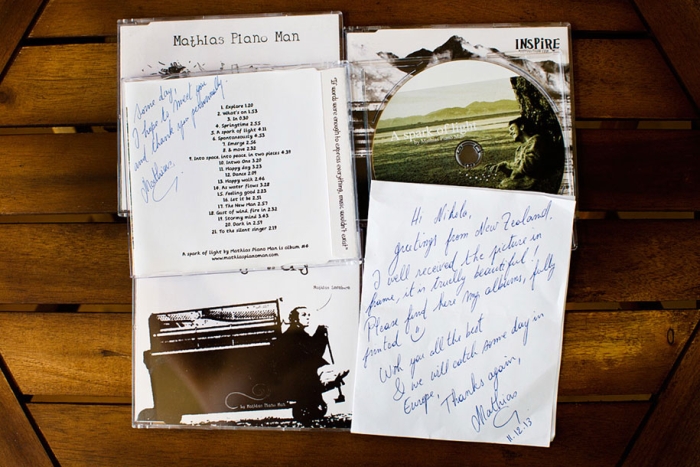 Mathias Piano Man
INSPIRE
Some day,
I hope to meet you
and thank you personally.
Mathias.
1. Explore 1.20
2. What's on 1.53
3. In 0.30
4. Springtime 2.55
5. A spark of light 4.21
6. Spontaneously 4.33
7. Emerge 2.56
8. E move 2.32
9. Into space, into peace, in two pieces 4.30
10. Intwo 3.20
11. Happy day 3.23
12. Dance 2.09
13. Happy walk 2.46
14. As water flows 3.28
15. Feeling good 2.25
16. Let it be 2.31
17. The New Man 2.57
18. Gust of wind, fire in 2.32
19. Storing mind 3.43
20. Dark in 2.57
21. To the silent singer 2.19
A spark of light by Mathias Piano Man is album #4
www.mathiaspianoman.com
"If words were enough to express everything, music wouldn't exist"
A spark of light
by Mathias Piano Man
Hi Nikola,
greetings from New Zealand.
I well received the picture in
frame, it is trully beautiful!
Please find here my albums, fully
printed
Wish you all the best
& we will catch some day in
Europe, Thanks again,
Mathias
11.12.13